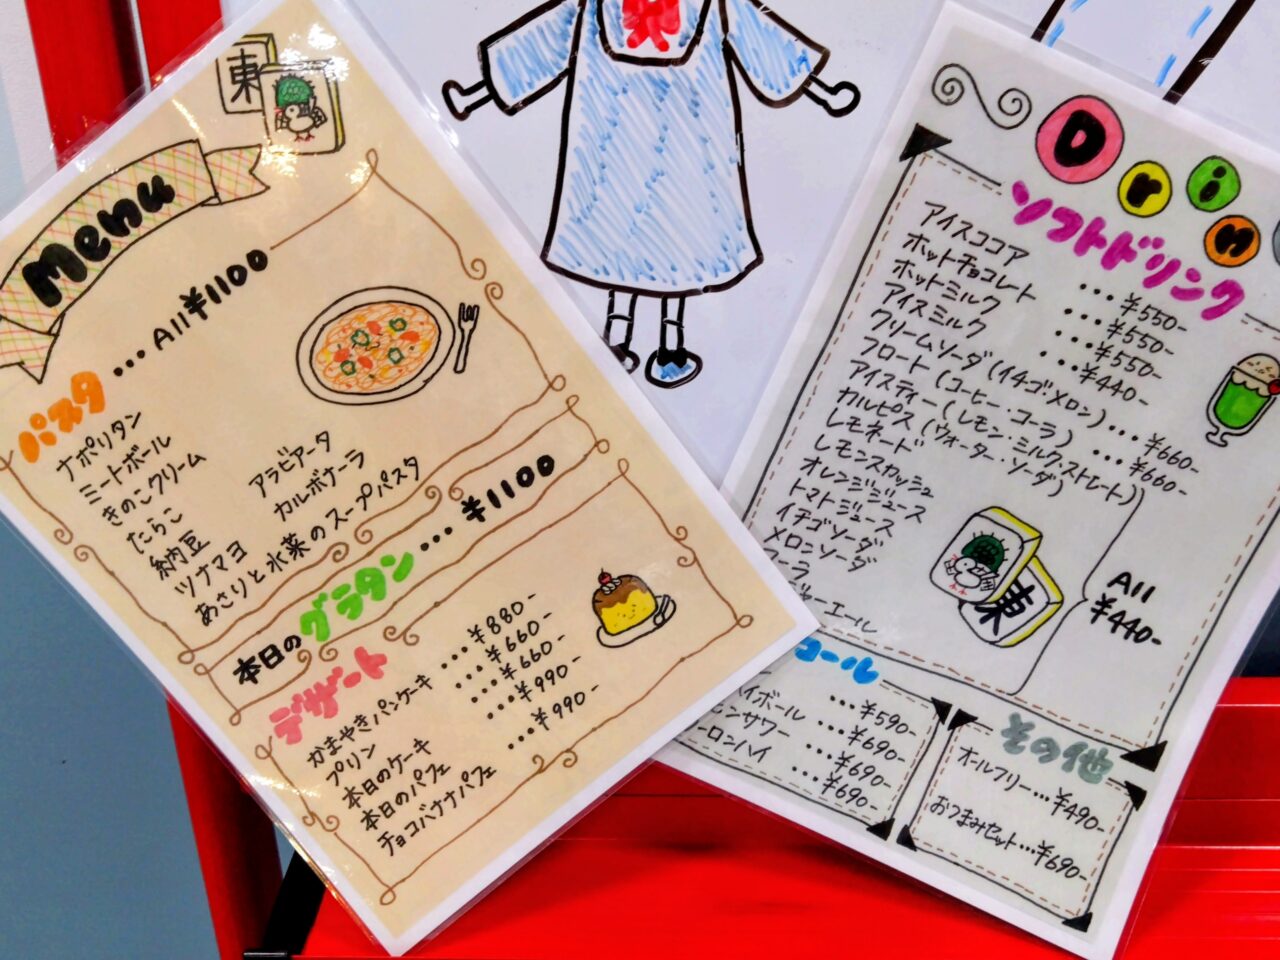 東
Menu
パスタ … All ¥1100
ナポリタン
ミートボール
きのこクリーム
たらこ
納豆
ツナマヨ
アラビアータ
カルボナーラ
あさりと水菜のスープパスタ
本日のグラタン … ¥1100
デザート
かまやきパンケーキ … ¥880-
プリン … ¥660-
本日のケーキ … ¥660
本日のパフェ … ¥990-
チョコバナナパフェ … ¥990-
Drin
ソフトドリンク
アイスココア … ¥550-
ホットチョコレート … ¥550-
ホットミルク … ¥550-
アイスミルク … ¥440-
クリームソーダ (イチゴ・メロン) … ¥660-
フロート (コーヒー・コーラ) … ¥660-
アイスティー (レモン・ミルク・ストレート)
カルピス (ウォーター・ソーダ)
レモネード
レモンスカッシュ
オレンジジュース
トマトジュース
イチゴソーダ
メロンソーダ
All ¥440-
東
コール
… ¥590-
イボール … ¥690-
ンサワー … ¥690-
ーロンハイ … ¥690-
その他
オールフリー … ¥490-
おつまみセット … ¥690-